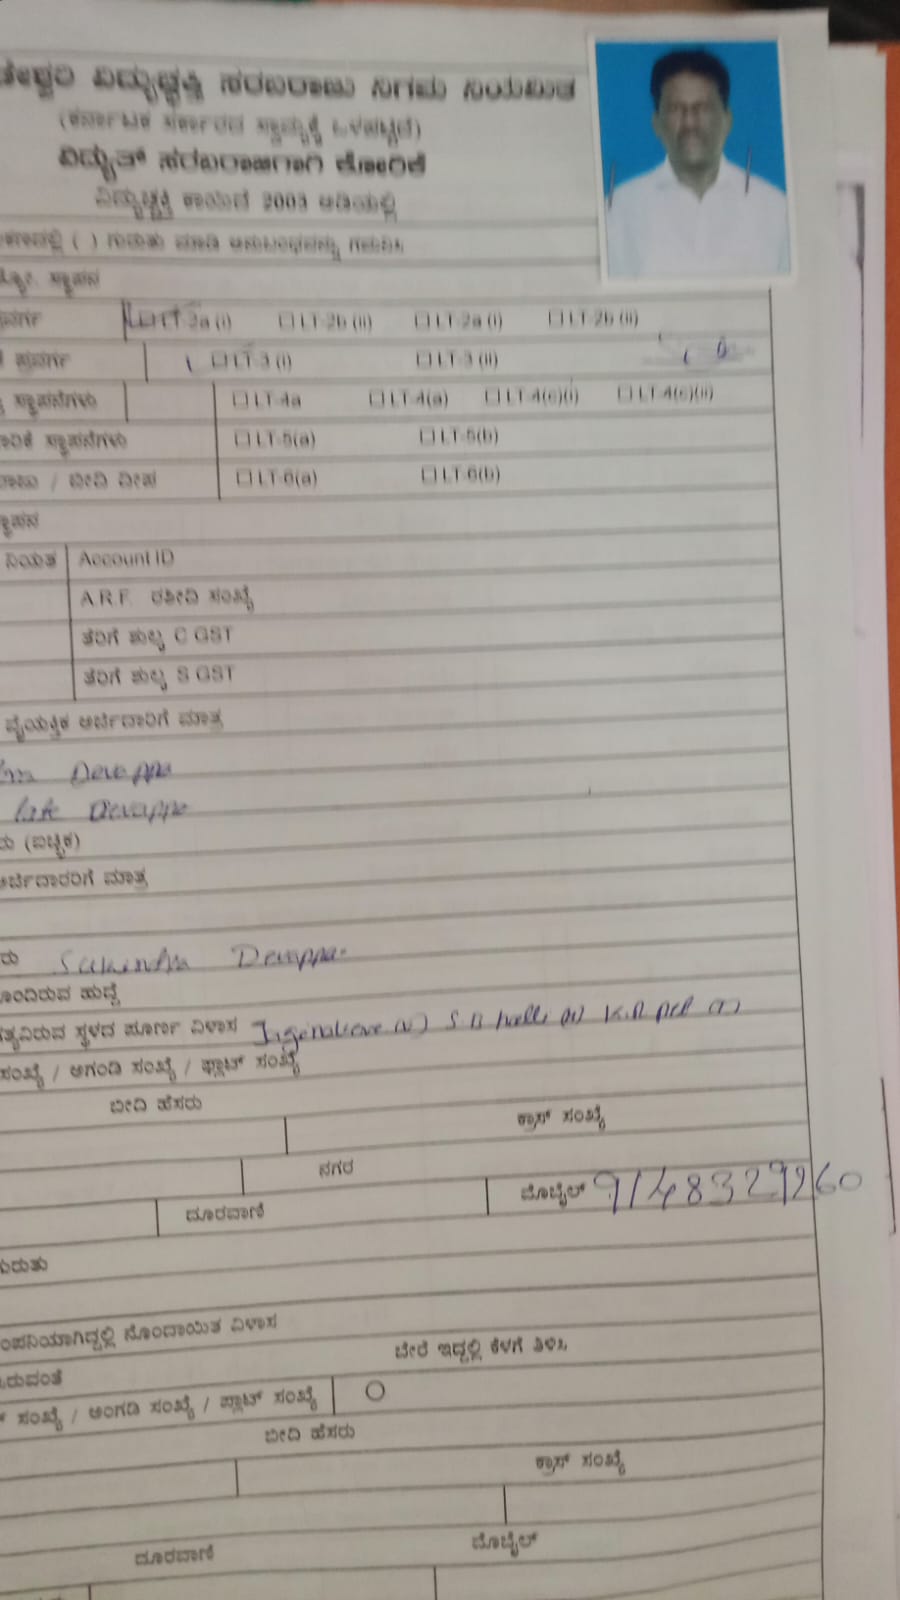 ವಿದ್ಯುಚ್ಛಕ್ತಿ ಸರಬರಾಜು ನಿಗಮ ನಿಯಮಿತ
(ಕರ್ನಾಟಕ ಸರ್ಕಾರದ ಸ್ವಾಮ್ಯಕ್ಕೆ ಒಳಪಟ್ಟಿದೆ)
ವಿದ್ಯುತ್ ಸರಬರಾಜಿಗಾಗಿ ಕೋರಿಕೆ
ವಿದ್ಯುಚ್ಛಕ್ತಿ ಕಾಯಿದೆ 2003 ಅಡಿಯಲ್ಲಿ
( ) ಗುರುತು ಮಾಡಿ ಅನುಬಂಧವನ್ನು ಗಮನಿಸಿ
ಸ್ಥಾಪನ
LT-2a (i) LT-2b (ii) LT-2a (i) LT-2b (ii)
LT-3 (i) LT-3 (ii)
ಸ್ಥಾಪನೆಗಳು LT-4a LT-4(a) LT-4(c)(i) LT-4(c)(ii)
ಸ್ಥಾಪನೆಗಳು LT-5(a) LT-5(b)
/ ಬೀದಿ ದೀಪ LT-6(a) LT-6(b)
ನಿಯತ Account ID
A.R.F. ರಶೀದಿ ಸಂಖ್ಯೆ
ತೆರಿಗೆ ಶುಲ್ಕ C GST
ತೆರಿಗೆ ಶುಲ್ಕ S GST
ವೈಯಕ್ತಿಕ ಅರ್ಜಿದಾರಿಗೆ ಮಾತ್ರ
Devappa
late Devappa
(ಐಚ್ಛಿಕ)
ಅರ್ಜಿದಾರರಿಗೆ ಮಾತ್ರ
Devappa
ಹುದ್ದೆ
ಸ್ಥಳದ ಪೂರ್ಣ ವಿಳಾಸ
ಸಂಖ್ಯೆ / ಅಂಗಡಿ ಸಂಖ್ಯೆ / ಫ್ಲಾಟ್ ಸಂಖ್ಯೆ
ಬೀದಿ ಹೆಸರು ಕ್ರಾಸ್ ಸಂಖ್ಯೆ
ನಗರ
ದೂರವಾಣಿ ಮೊಬೈಲ್ 9148329260
ಗುರುತು
ನೊಂದಾಯಿತ ವಿಳಾಸ
ಬೇರೆ ಇದ್ದಲ್ಲಿ ಕೆಳಗೆ ತಿಳಿಸಿ
ಸಂಖ್ಯೆ / ಅಂಗಡಿ ಸಂಖ್ಯೆ / ಫ್ಲಾಟ್ ಸಂಖ್ಯೆ
ಬೀದಿ ಹೆಸರು
ಕ್ರಾಸ್ ಸಂಖ್ಯೆ
ದೂರವಾಣಿ ಮೊಬೈಲ್